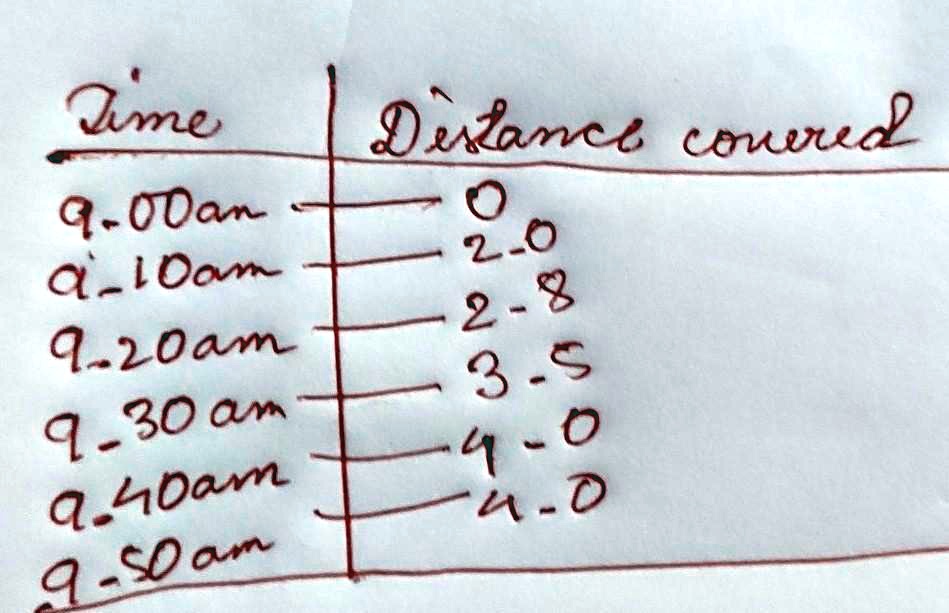 Time Distance covered
9-00am — 0
9-10am — 2-0
9-20am — 2-8
9-30am — 3-5
9-40am — 4-0
9-50am — 4-0